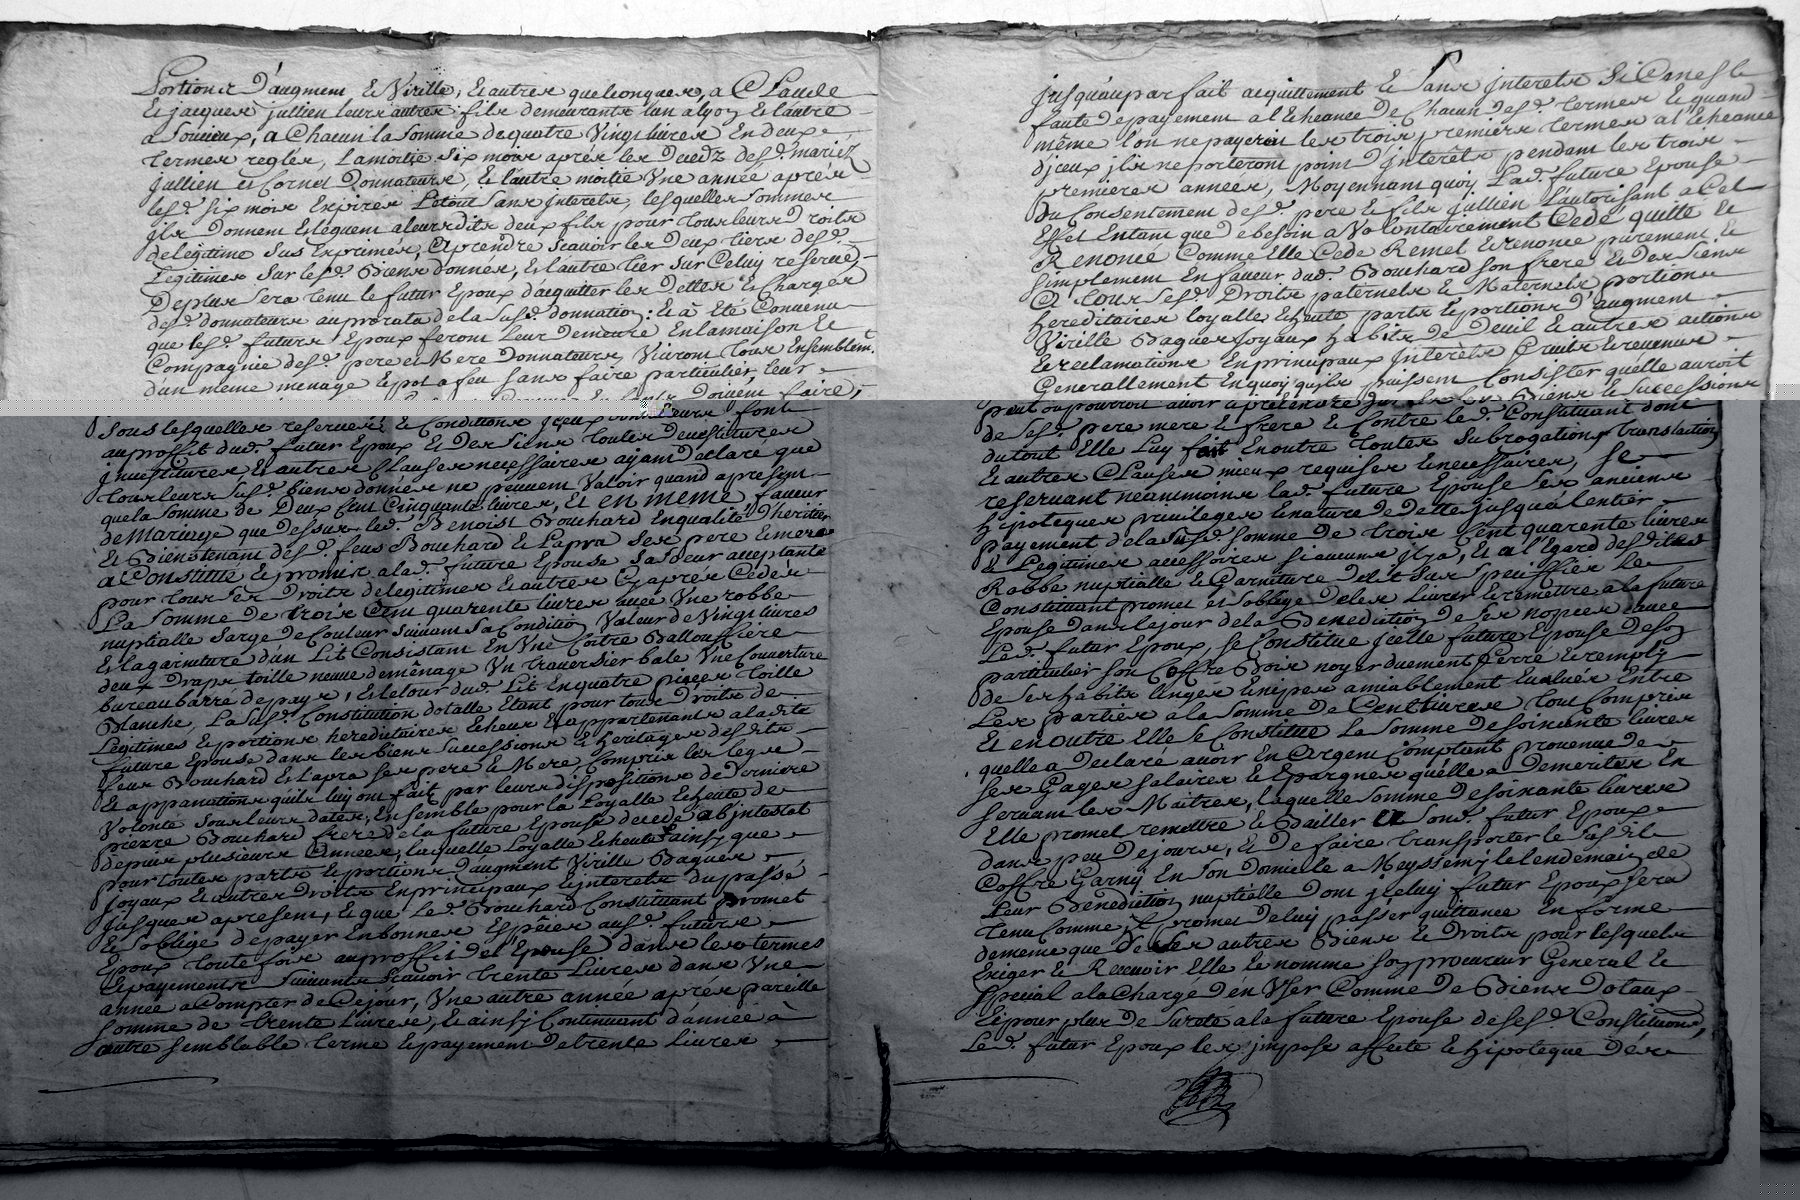 Portions d'augment & Virille, & autres quelconques, a Claude
& jacques jullien leurs autres fils demeurants l'un a lyon & l'autre
a Soucieux, a Chacun la somme de quatre Vingt livres En deux
termes reglés, la moitié six mois après les decedz desd. mariez
jullien et Cornet Donnateurs, & l'autre moitié Vne année après
lesd. six mois Expirés Letout Sans Interets, lesquelles sommes
ils Donnent & leguent a leursdits deux fils pour tous leurs Droits
de legitime sus Exprimés, a prendre scavoir les Deux tiers desd.
Legitimes sur lesd. Biens donnés, & l'autre tier sur Celuy reservé,
De plus sera tenu le futur Epoux d'acquitter les Dettes & Charges
desd. donnateurs au prorata de la susd. donnation: & a Eté Convenu
que lesd. futurs Epoux feront leur demeure En la maison &
Compagnie desd. pere et Mere Donnateurs, Vivront tous Ensemblem.
d'un meme menage & pot a feu sans faire particulier, leur
doivent faire,
Sous lesquelles reserves & Conditions Iceux Donnateurs font
au proffit dud. futur Epoux & des Siens toutes devestitures
Investitures, & autres Clauses necessaires ayant declare que
tous leurs susd. biens donnés ne peuvent Valoir quand apresent
que la somme de Deux Cent Cinquante livres, Et en meme faveur
de Mariage que dessus led. Benoist Bouchard En qualité d'heritier
& Bienstenant desd. feus Bouchard & Lapra ses pere & mere
a Constitué & promis a lad. future Epouse sa soeur acceptante
pour tous ses Droits de legitimes & autres Cy après Cedés
La Somme de trois Cent quarente livres avec Vne robbe
nuptialle sarge de Couleur suivant sa Condition Valeur de Vingt livres
& la garniture d'un Lit Consistant En Vne Coitre Balouffiere
deux Draps toille neuve de menage Vn traversier bale Vne Couverture
bureau barré de pays, & le tour dud. Lit En quatre pieces toille
Blanche, La susd. Constitution dotalle Etant pour tous Droits de
Legitimes & portions hereditaires Echeus & appartenants a ladite
future Epouse dans les biens successions & heritages desdits
feus Bouchard & Lapra ses pere & Mere, Compris les legs
& appanations quils luy ont fait par leurs dispositions de Derniere
Volonté sous leurs dates, Ensemble pour la Loyalle Echeute de
pierre Bouchard frere de la future Epouse decedé ab intestat
depuis plusieurs Années, laquelle Loyalle Echeute ainsy que
pour toutes parts & portions d'augment Virille Bagues
joyaux & autres Droits En principaux & interets du passé
jusques apresent, & que Led. Bouchard Constituant promet
& s'oblige de payer En bonnes Espèces ausd. future
Epoux toute fois au proffit de l'Epouse dans les termes
& payements suivants scavoir trente Livres dans Vne
année a Compter de Cejour, Vne autre année après pareille
somme de trente Livres, & ainsy Continuant d'année a
autre semblable terme & payement de trente Livres
jusqu'au parfait acquittement & sans interets si Ce nest le
faute de payement a l'Echeance de Chacun desd. termes & quand
même l'on ne payeroit les trois premiers termes a l'Echeance
d'jceux jls ne porteront point d'Interêts pendant les trois
premieres années, Moyennant quoy Lad. future Epouse
Du Consentement desd. pere & fils jullien L'autorisant a Cet
Effet En tant que de besoin a Volontairement Cedé quitté &
Renoncé Comme Elle Cede Remet & renonce purement &
simplement En faveur dud. Bouchard son frere & des Siens
A tous sesd. Droits paternels & Maternels portions
hereditaires loyalle Echeute parts & portions d'augment
Virille Bagues Joyaux habits de Deuil & autres actions
& reclamations En principaux Interêts Fruits & revenus
Generallement En quoy qu'ils puissent Consister qu'elle auroit
peut ou pourroit avoir a pretendre sur les Biens & successions
de sesd. pere mere & frere & Contre led. Constituant dont
du tout Elle Luy fait En outre toutes Subrogations translations
& autres Clauses mieux requises & necessaires, se
reservant neanmoins lad. future Epouse ses anciens
hipoteques privileges & nature de dette jusqu'à lentier
payement de la susd. somme de trois Cent quarente livres
& Legitimes accessoires si aucuns jl ya, Et a l'Egard desdites
Robbe nuptialle & Garniture de lit sus speciffiés Le
Constituant promet et soblige de les Livrer & remettre a la future
Epouse dans le jour de la Benediction de ses nopces avec
Led. futur Epoux, se Constitue jcelle future Epouse de son
particulier son Coffre Bois noyer duement ferré & remply
de ses habits linges & nipes amiablement Evalués Entre
Les parties a la somme de Cent livres tout Compris
Et en outre Elle se Constitue La somme de soixante livres
quelle a Declaré avoir En Argent Comptant provenue de
ses Gages salaires & Epargnes qu'elle a demerités En
servant les Maitres, laquelle somme de soixante livres
Elle promet remettre & Bailler a sond. futur Epoux
dans peu de jours, & de faire transporter le susdit
Coffre Garny En son Domicile a Meyssemy le lendemain de
Leur Benediction nuptialle dont jceluy futur Epoux sera
tenu Comme jl promet de luy passer quittance En forme
de meme que de ses autres Biens & Droits pour lesquels
Exiger & Recevoir Elle le nomme son procureur General &
special a la Charge d'en Vser Comme de Biens Dotaux
& pour plus de sureté a la future Epouse de sesd. Constitutions,
Led. futur Epoux les jmpose affecte & hipoteque dès